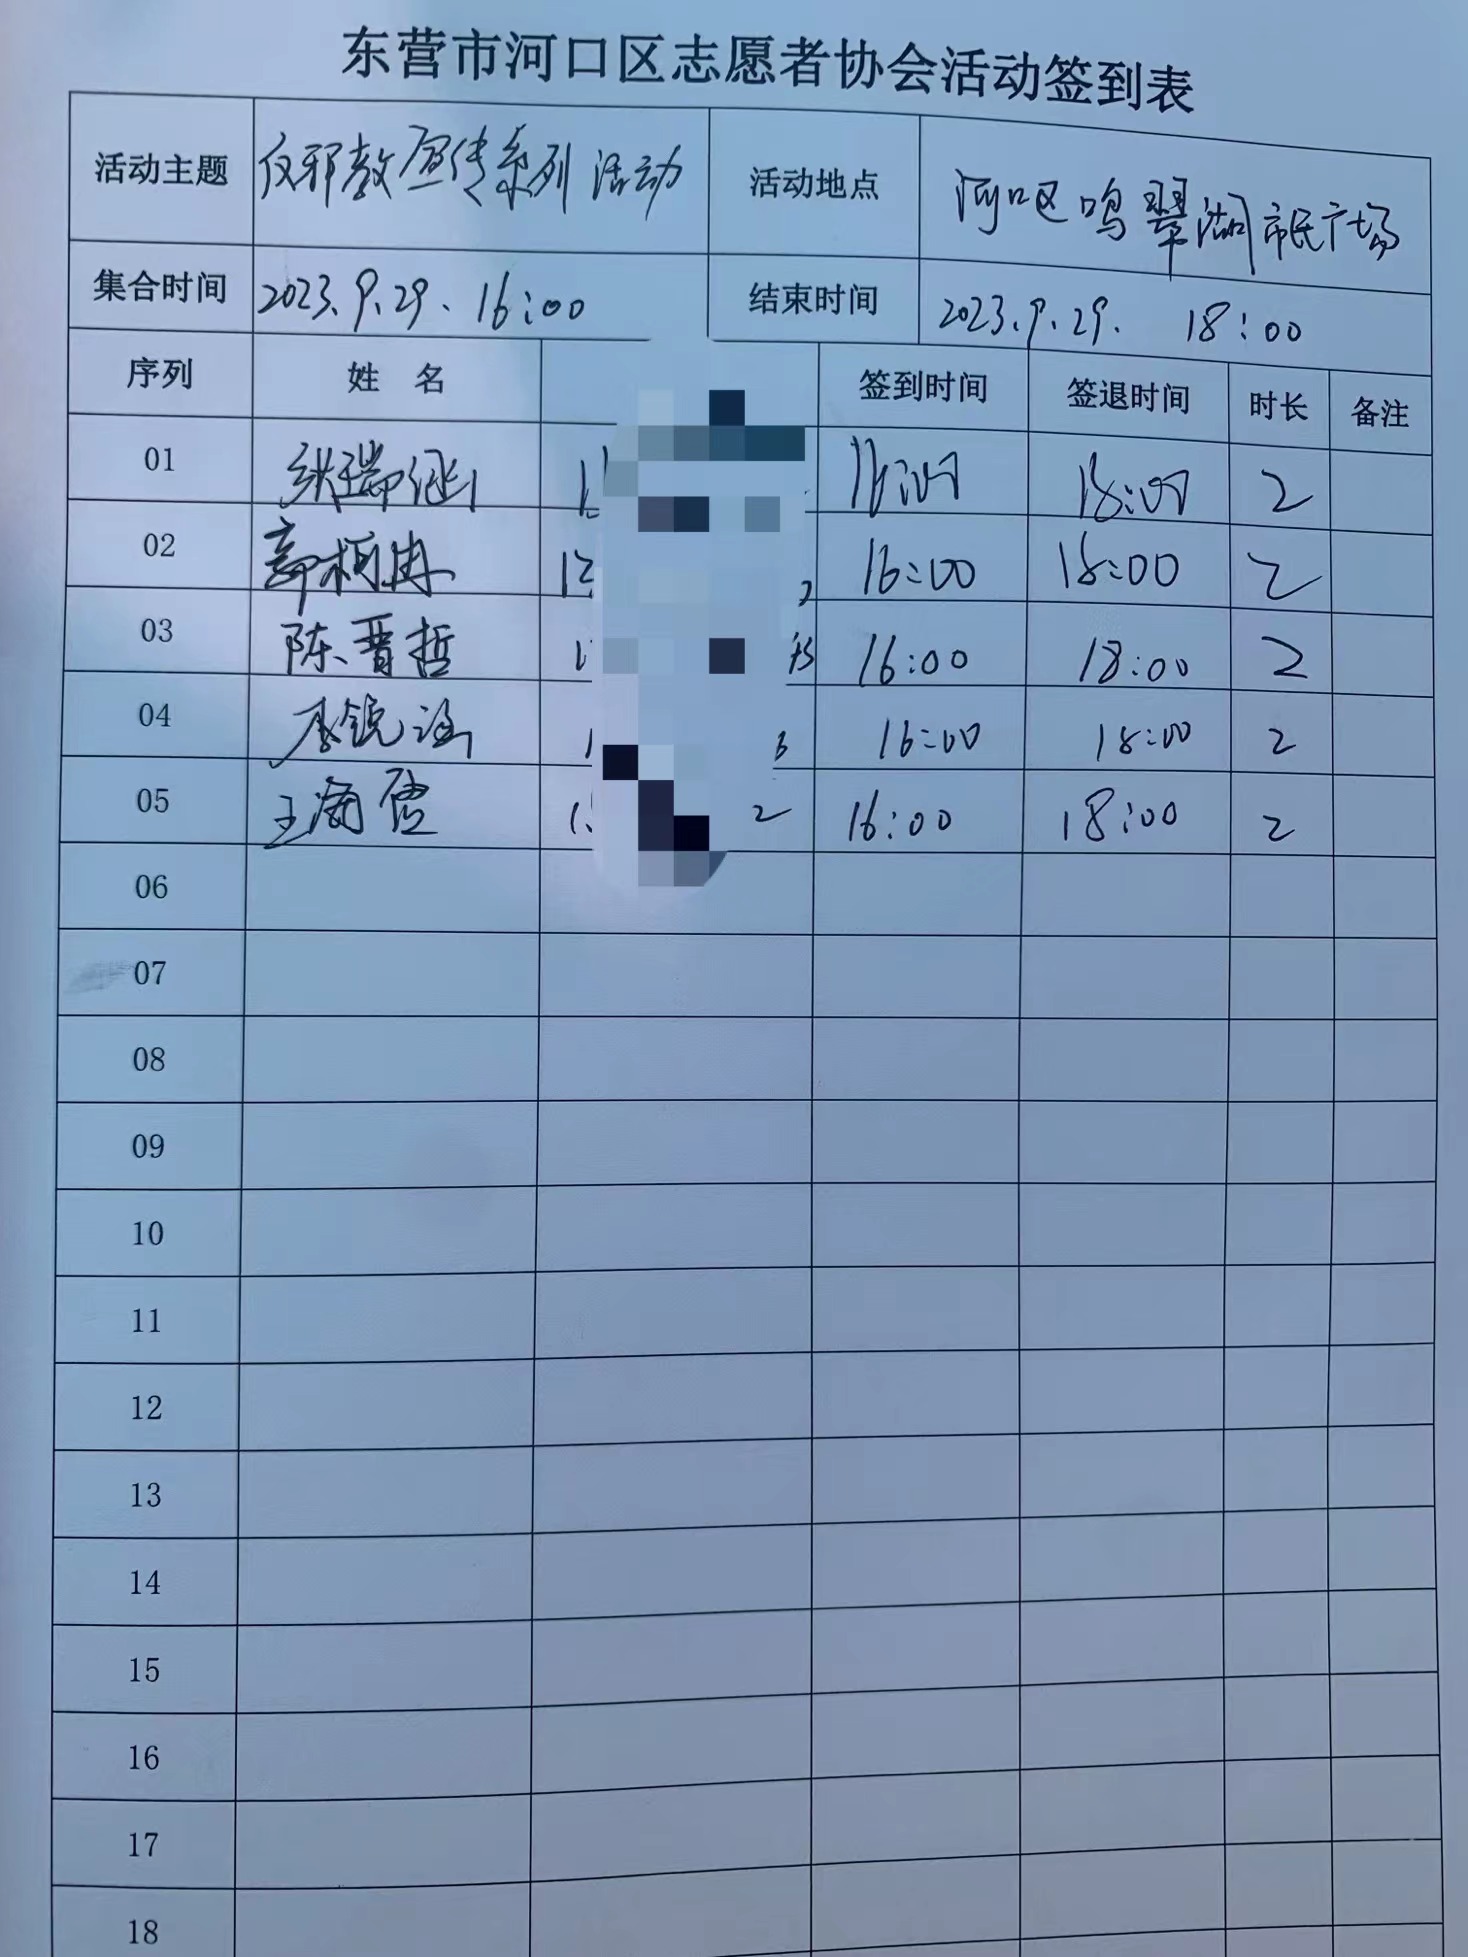 东营市河口区志愿者协会活动签到表
活动主题 反邪教宣传系列活动 活动地点 河口区鸣翠湖市民广场
集合时间 2023.9.29. 16:00 结束时间 2023.9.29. 18:00
序列 姓 名 签到时间 签退时间 时长 备注
01 16:00 18:00 2
02 16:00 18:00 2
03 陈晋哲 16:00 18:00 2
04 李锐涵 16:00 18:00 2
05 王 2 16:00 18:00 2
06
07
08
09
10
11
12
13
14
15
16
17
18